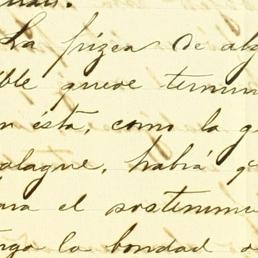 La pizca de alg
ible queve termin
n ésta, como la g
alague, habrá q
ara el sostenimie
nga la bondad d